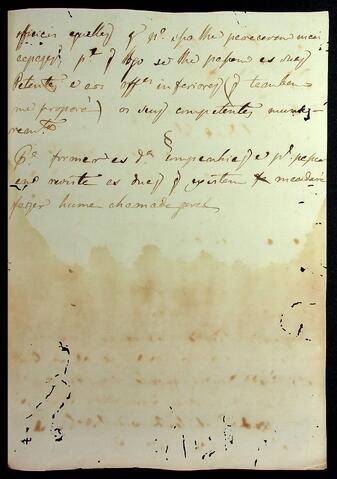 officiaes aquelles q pª. isso lhe parecerem mais
capazes, pª. q logo se lhe passem as suas
Patentes e aos offes. inferiores (q tambem
me proporá) os seus competentes
§
Pª. formar as dªs. Companhias e pª. passar
revista as duas q existem mandará
fazer huma chamada geral